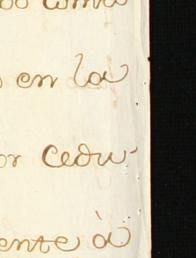 como
en la
or cedu-
ente à